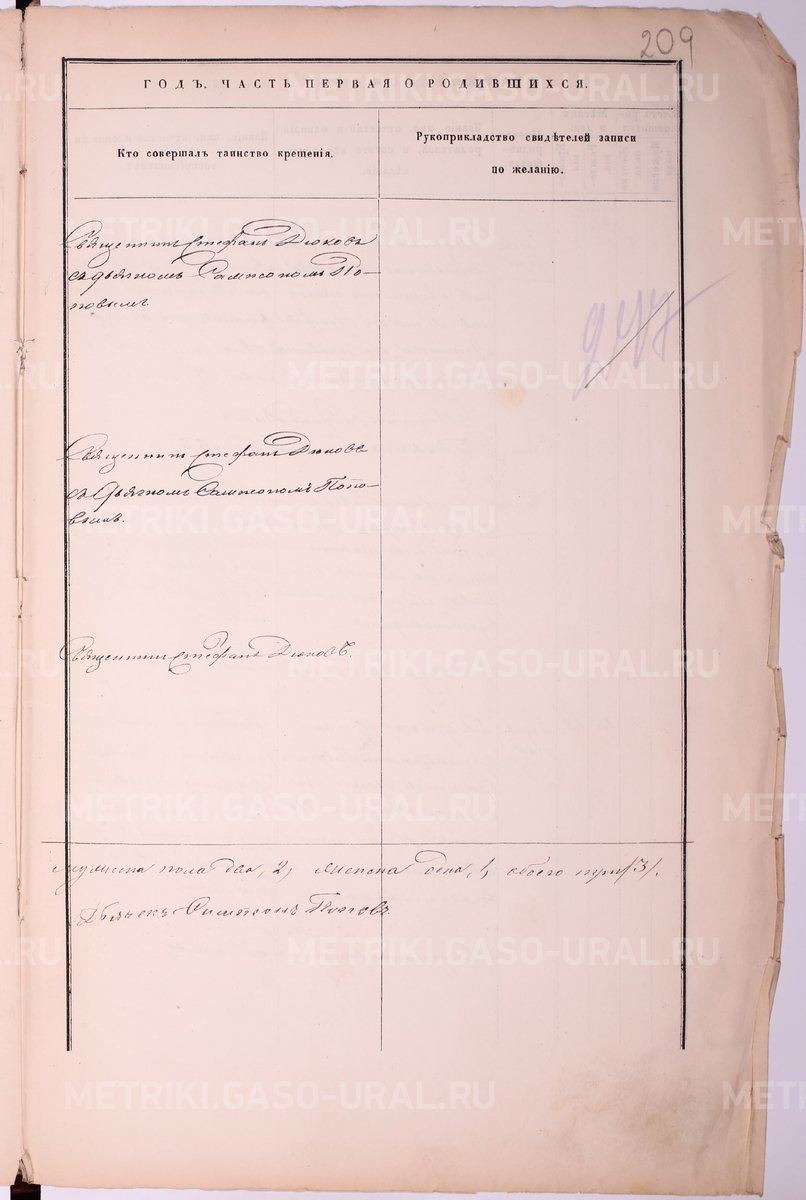 209
ГОДЪ. ЧАСТЬ ПЕРВАЯ О РОДИВШИХСЯ.
Кто совершалъ таинство крещенія.
Рукоприкладство свидѣтелей записи
по желанію.
Священникъ Стефанъ Дюковъ
съ дьячкомъ Сампсономъ По-
повымъ.
Священникъ Стефанъ Дюковъ
съ Дьячкомъ Сампсономъ Попо-
вымъ.
Священникъ Стефанъ Дюковъ.
мужеска пола два, 2, женска одна, 1, обоего три /3/.
Дьячекъ Сампсонъ Поповъ.
METRIKI.GASO-URAL.RU